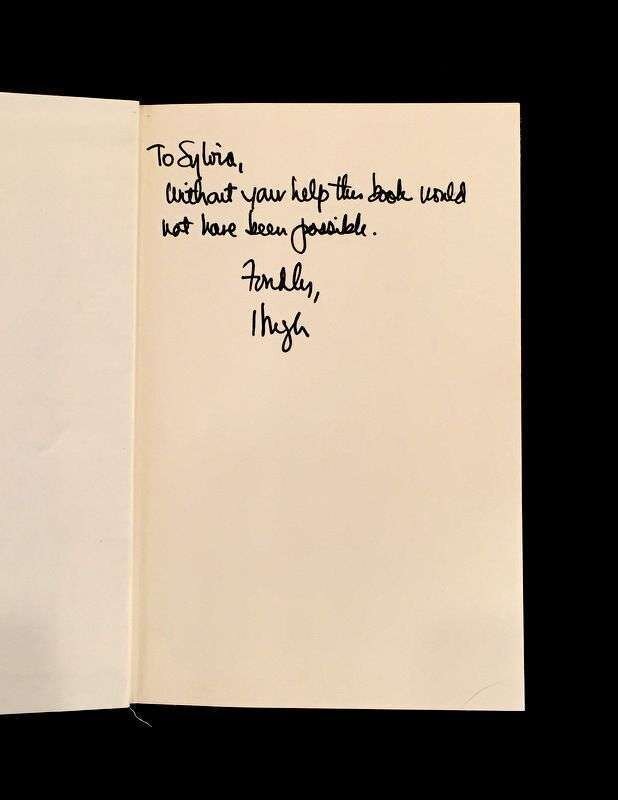 To Sylvia,
without your help this book would
not have been possible.
Fondly,
Hugh